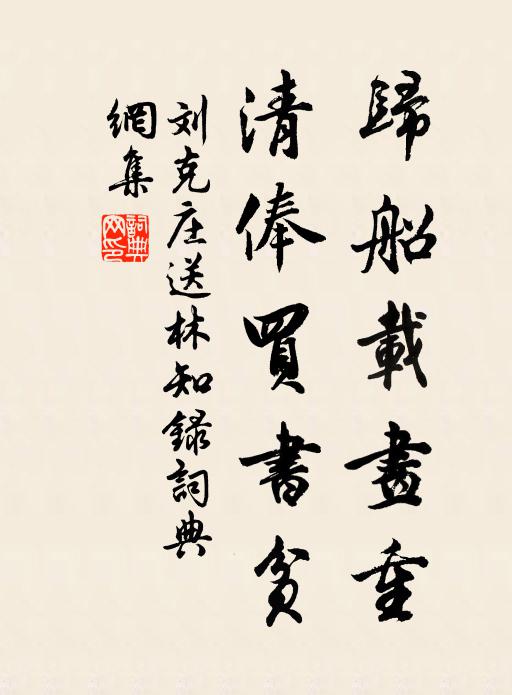 歸船載畫重
清俸買書貧
刘克庄送林知録詞典
網集
詞典网印